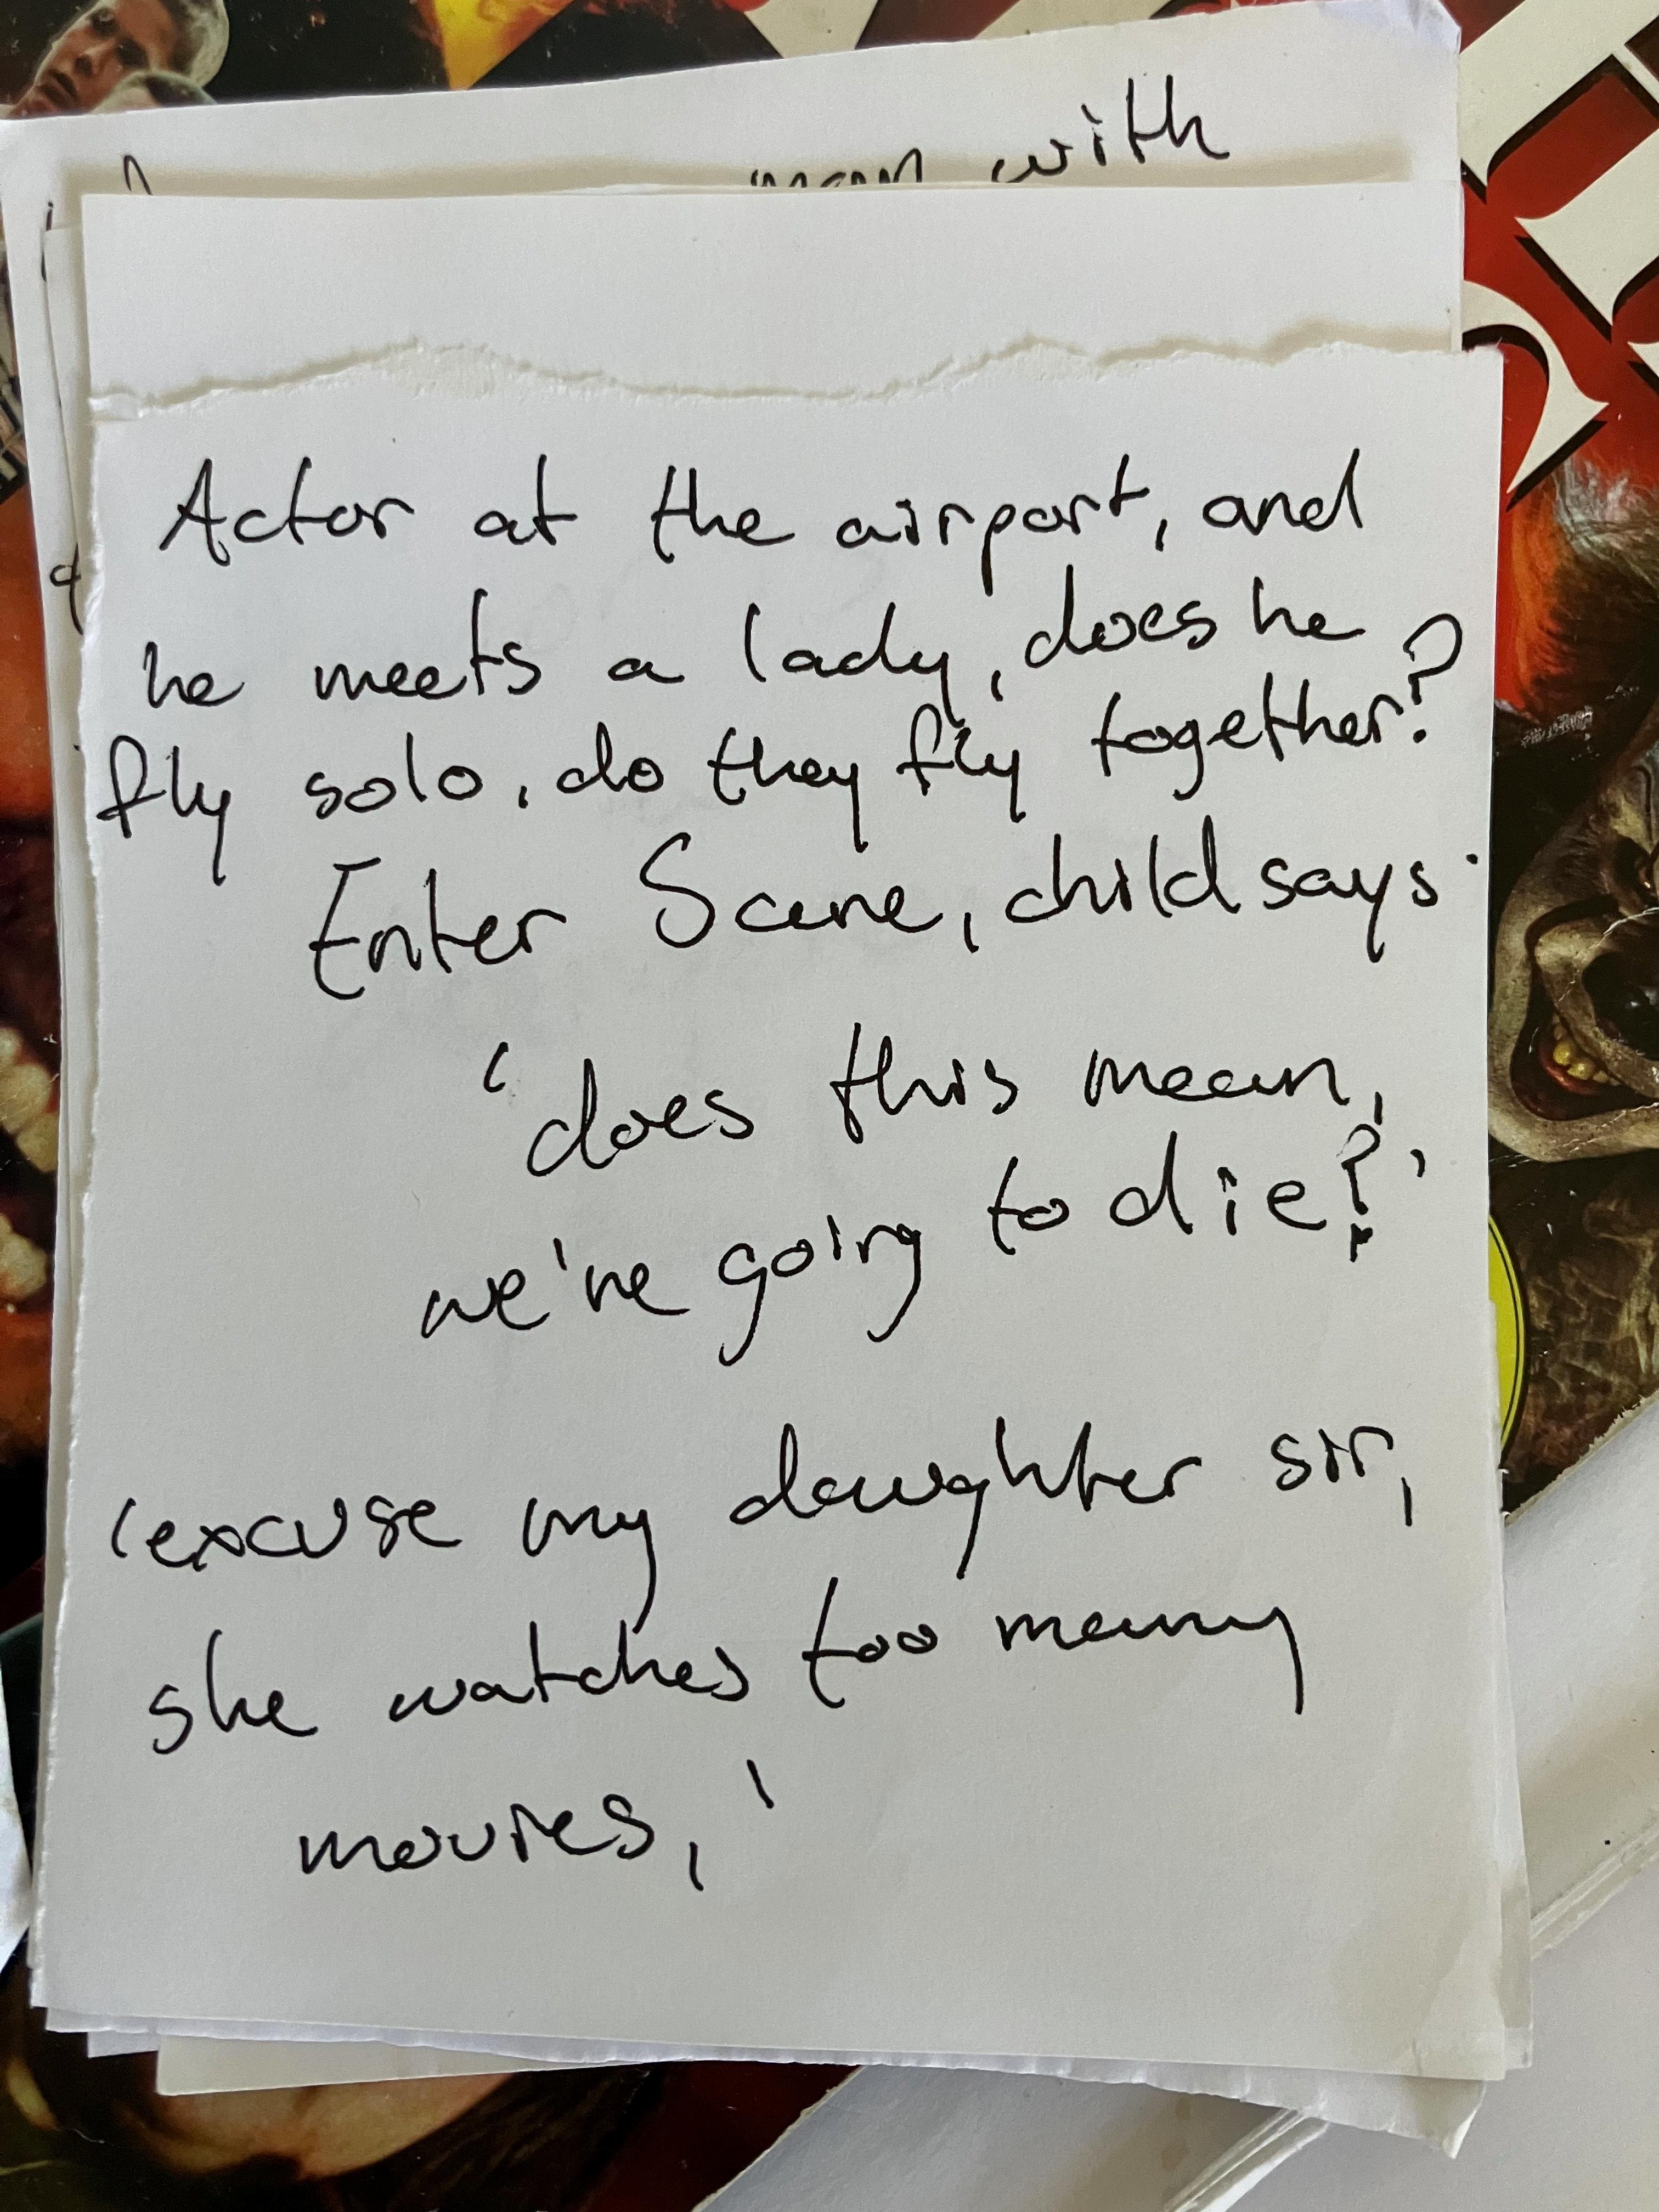 man with
Actor at the airport, and
he meets a lady, does he
fly solo, do they fly together?
Enter Scene, child says
'does this mean,
we're going to die?'
'excuse my daughter sir,
she watches too many
movies,'